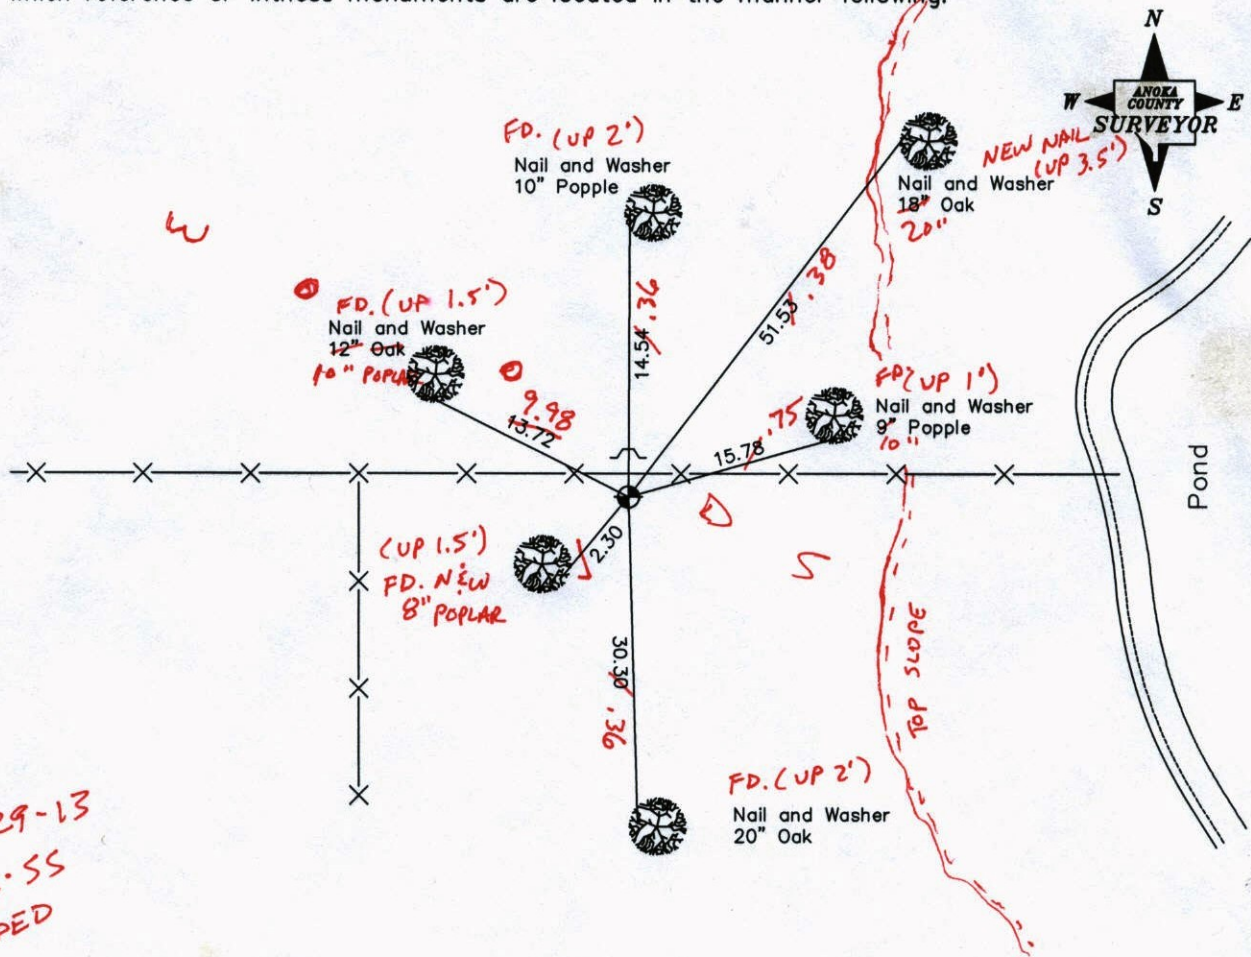 N
W ANOKA COUNTY E
SURVEYOR
S
FD. (UP 2')
Nail and Washer
10" Popple
NEW NAIL
(UP 3.5')
Nail and Washer
18" Oak
20"
W
FD. (UP 1.5')
Nail and Washer
12" Oak
10" POPLAR
14.54 .36
51.53 .38
9.98
13.72
FD? (UP 1')
Nail and Washer
9" Popple
10"
15.78 .75
Pond
(UP 1.5')
FD. N&W
8" POPLAR
2.30
S
30.30 .36
TOP SLOPE
FD. (UP 2')
Nail and Washer
20" Oak
29-13
.55